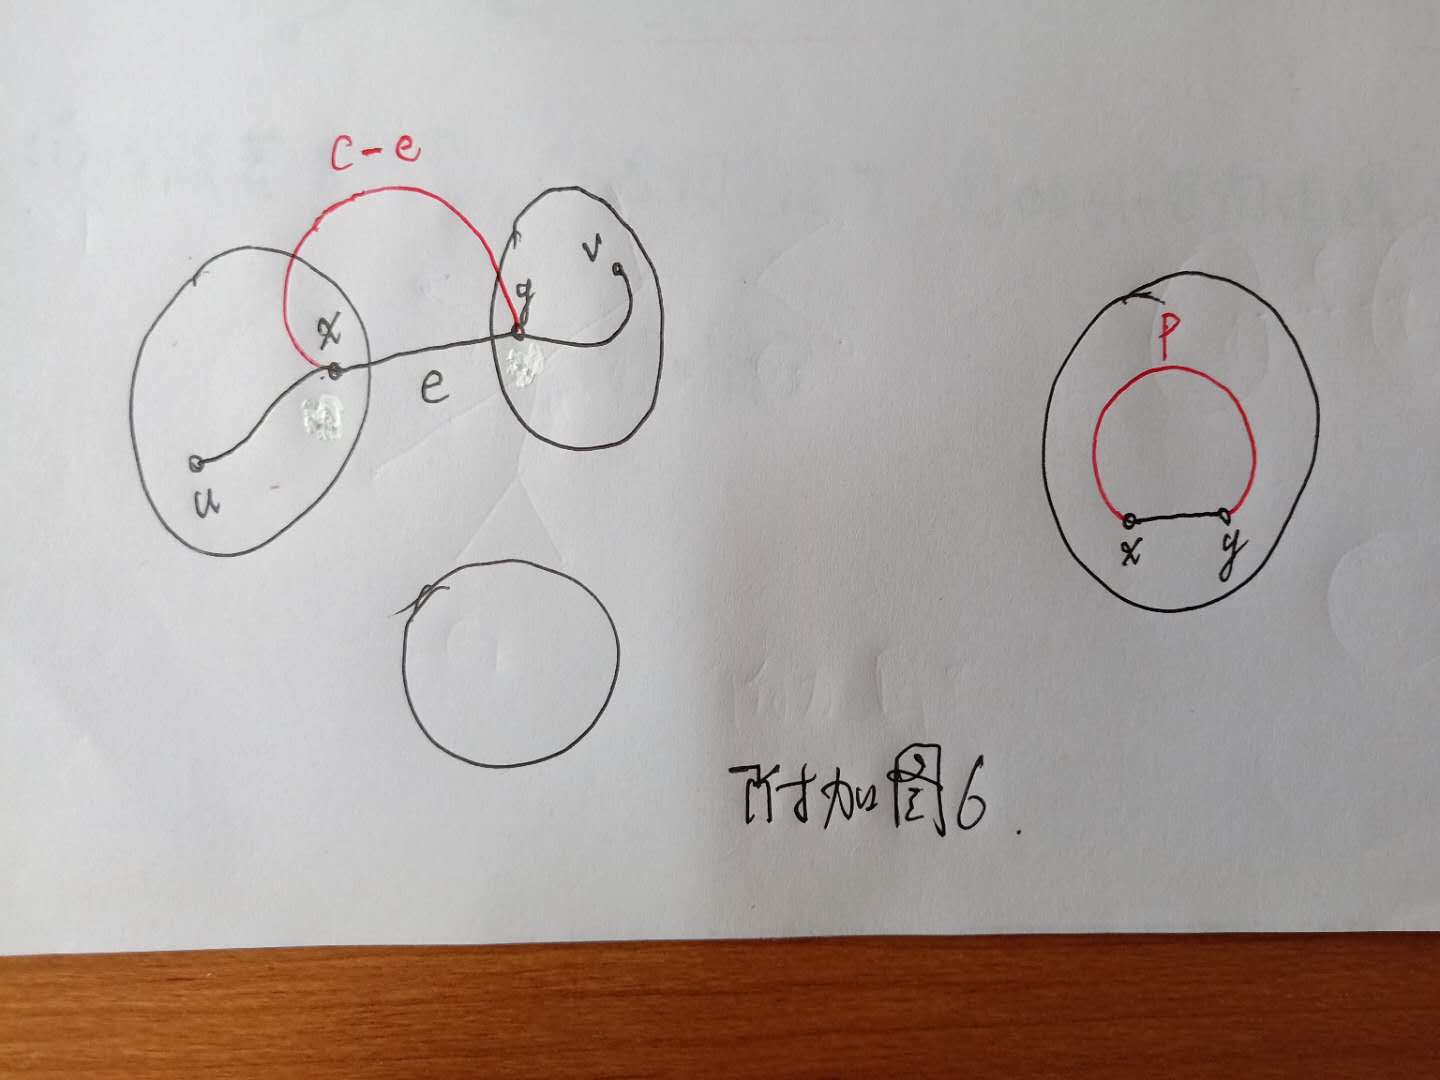 c-e
x
y
v
e
u
P
x
y
附加图6.